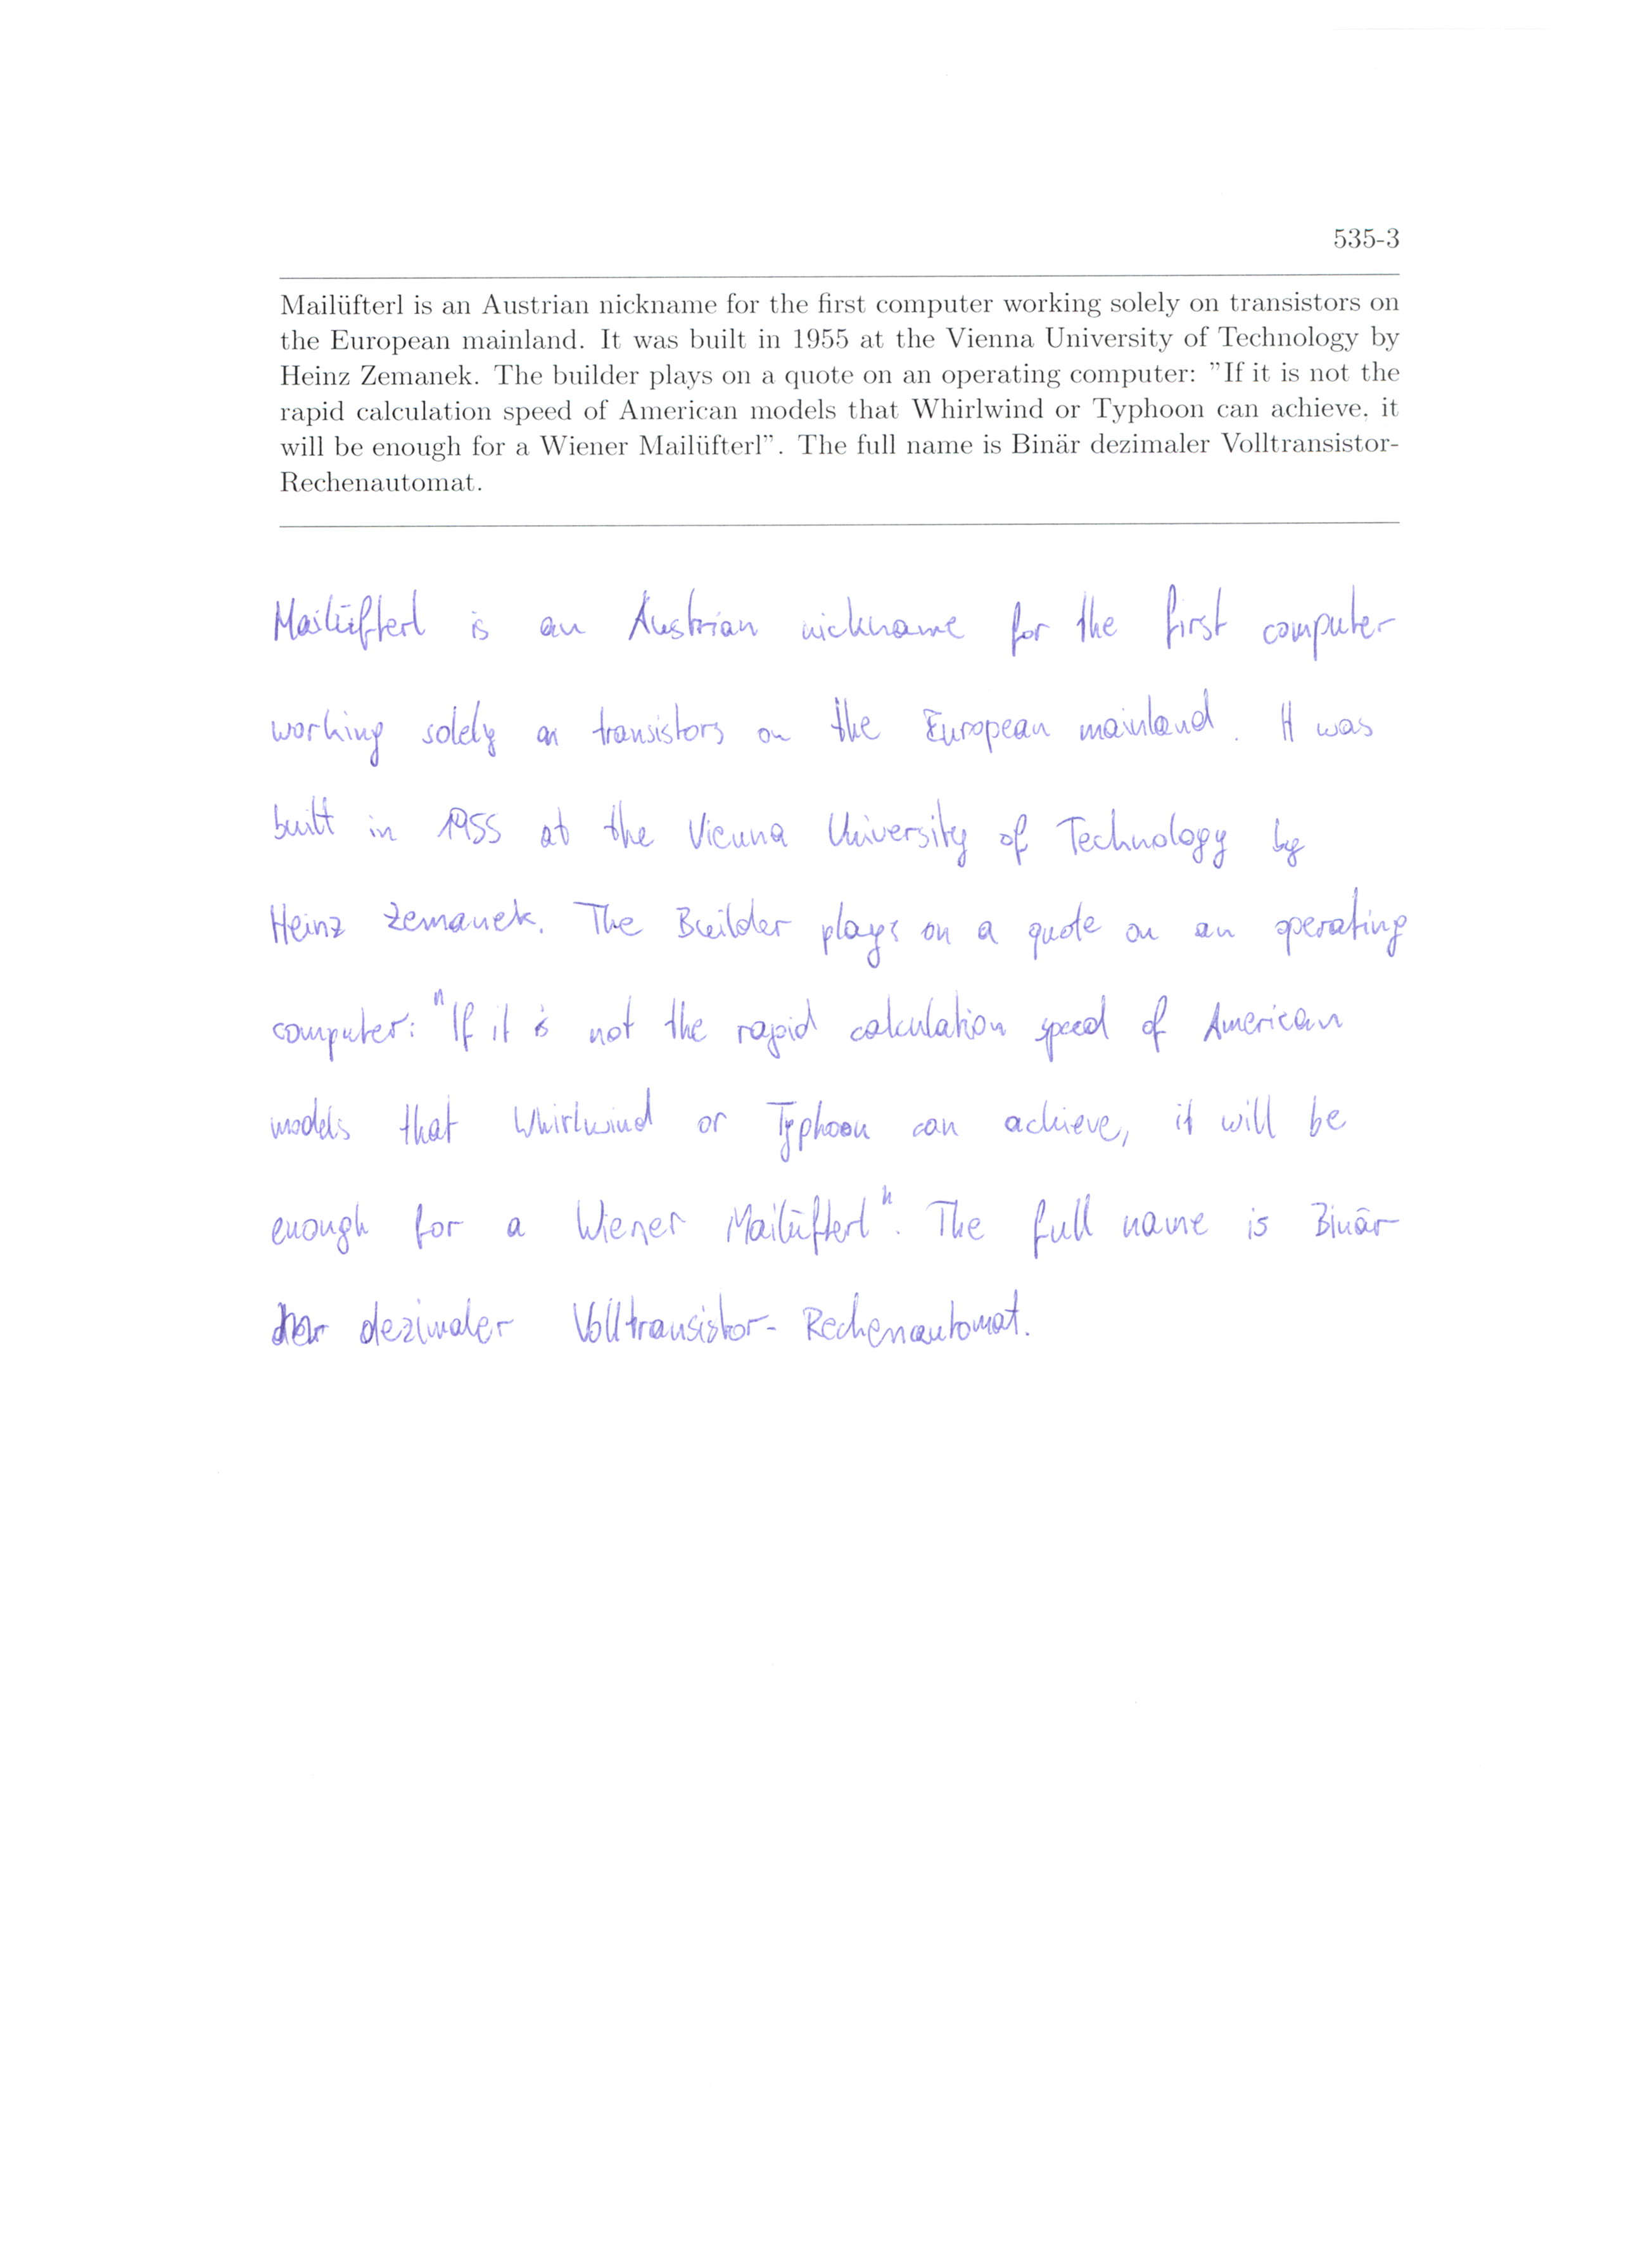 535-3
Mailüfterl is an Austrian nickname for the first computer working solely on transistors on
the European mainland. It was built in 1955 at the Vienna University of Technology by
Heinz Zemanek. The builder plays on a quote on an operating computer: "If it is not the
rapid calculation speed of American models that Whirlwind or Typhoon can achieve, it
will be enough for a Wiener Mailüfterl". The full name is Binär dezimaler Volltransistor-
Rechenautomat.
Mailüfterl is an Austrian nickname for the first computer
working solely on transistors on the European mainland. It was
built in 1955 at the Vienna University of Technology by
Heinz Zemanek. The Builder plays on a quote on an operating
computer: "If it is not the rapid calculation speed of American
models that Whirlwind or Typhoon can achieve, it will be
enough for a Wiener Mailüfterl". The full name is Binär
dezimaler Volltransistor-Rechenautomat.